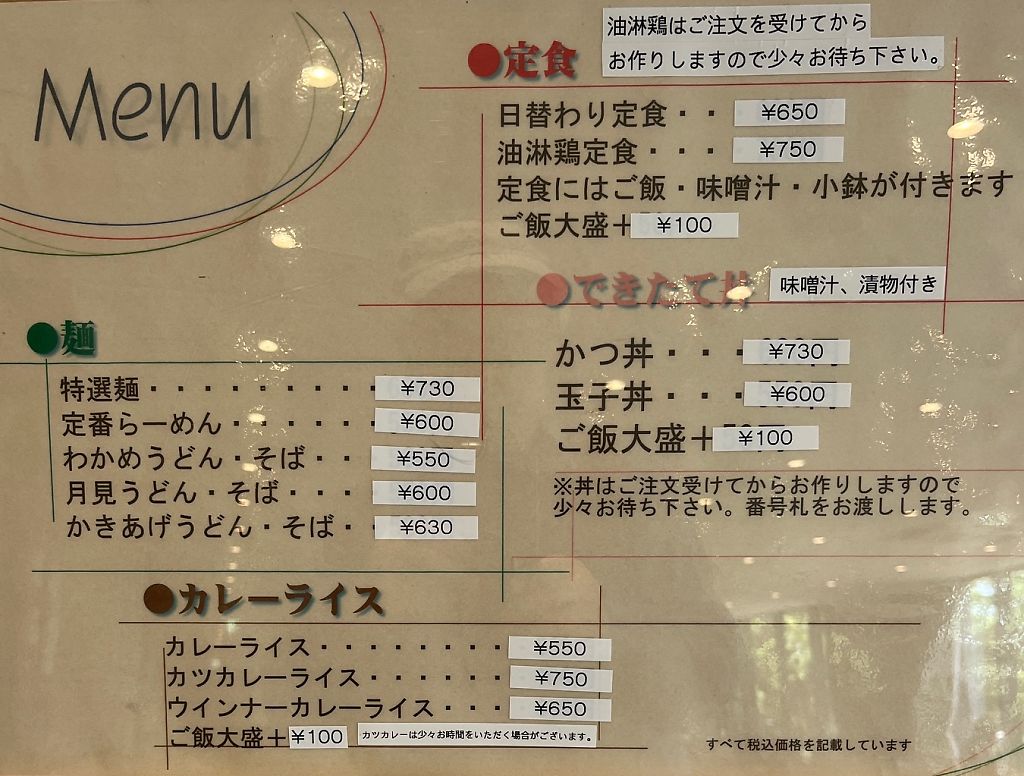 Menu
●定食
油淋鶏はご注文を受けてから
お作りしますので少々お待ち下さい。
日替わり定食・・ ¥650
油淋鶏定食・・・ ¥750
定食にはご飯・味噌汁・小鉢が付きます
ご飯大盛＋ ¥100
●できたて丼 味噌汁、漬物付き
かつ丼・・・ ¥730
玉子丼・・・ ¥600
ご飯大盛＋ ¥100
※丼はご注文受けてからお作りしますので
少々お待ち下さい。番号札をお渡しします。
●麺
特選麺・・・・・・・・・ ¥730
定番らーめん・・・・・・ ¥600
わかめうどん・そば・・ ¥550
月見うどん・そば・・・ ¥600
かきあげうどん・そば・ ¥630
●カレーライス
カレーライス・・・・・・・・ ¥550
カツカレーライス・・・・・・ ¥750
ウインナーカレーライス・・・ ¥650
ご飯大盛＋ ¥100 カツカレーは少々お時間をいただく場合がございます。
すべて税込価格を記載しています